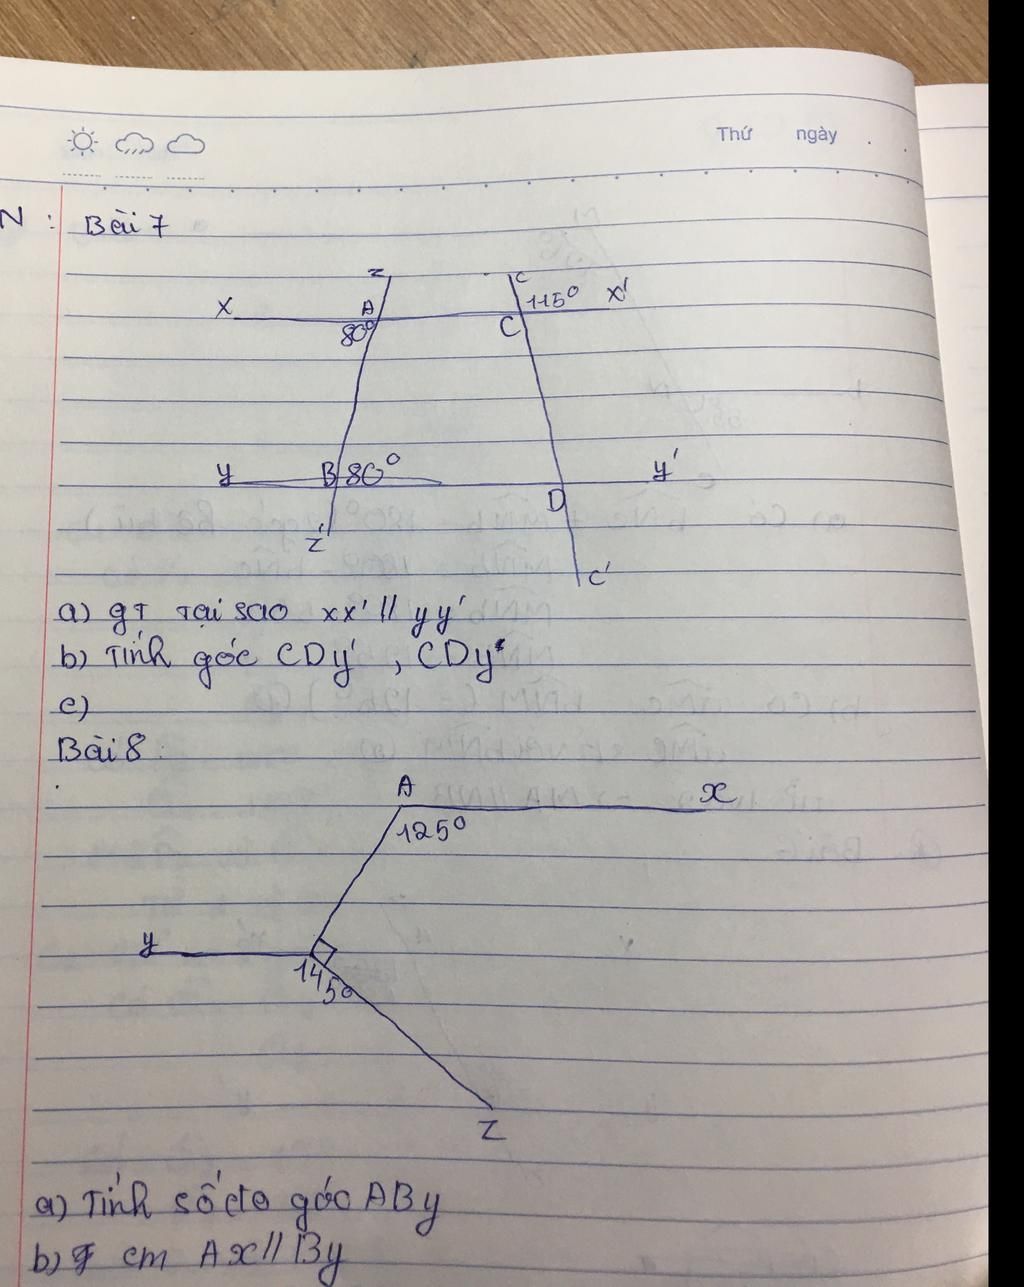 Thứ ngày
N : Bài 7
z c
x A 115° x'
80° C
y B 80° y'
D
z' c'
a) gT Tại sao xx' // yy'
b) Tính góc CDy' , CDy
c)
Bài 8 :
A x
125°
y
145°
z
a) Tính số đo góc ABy
b) cm Ax // By